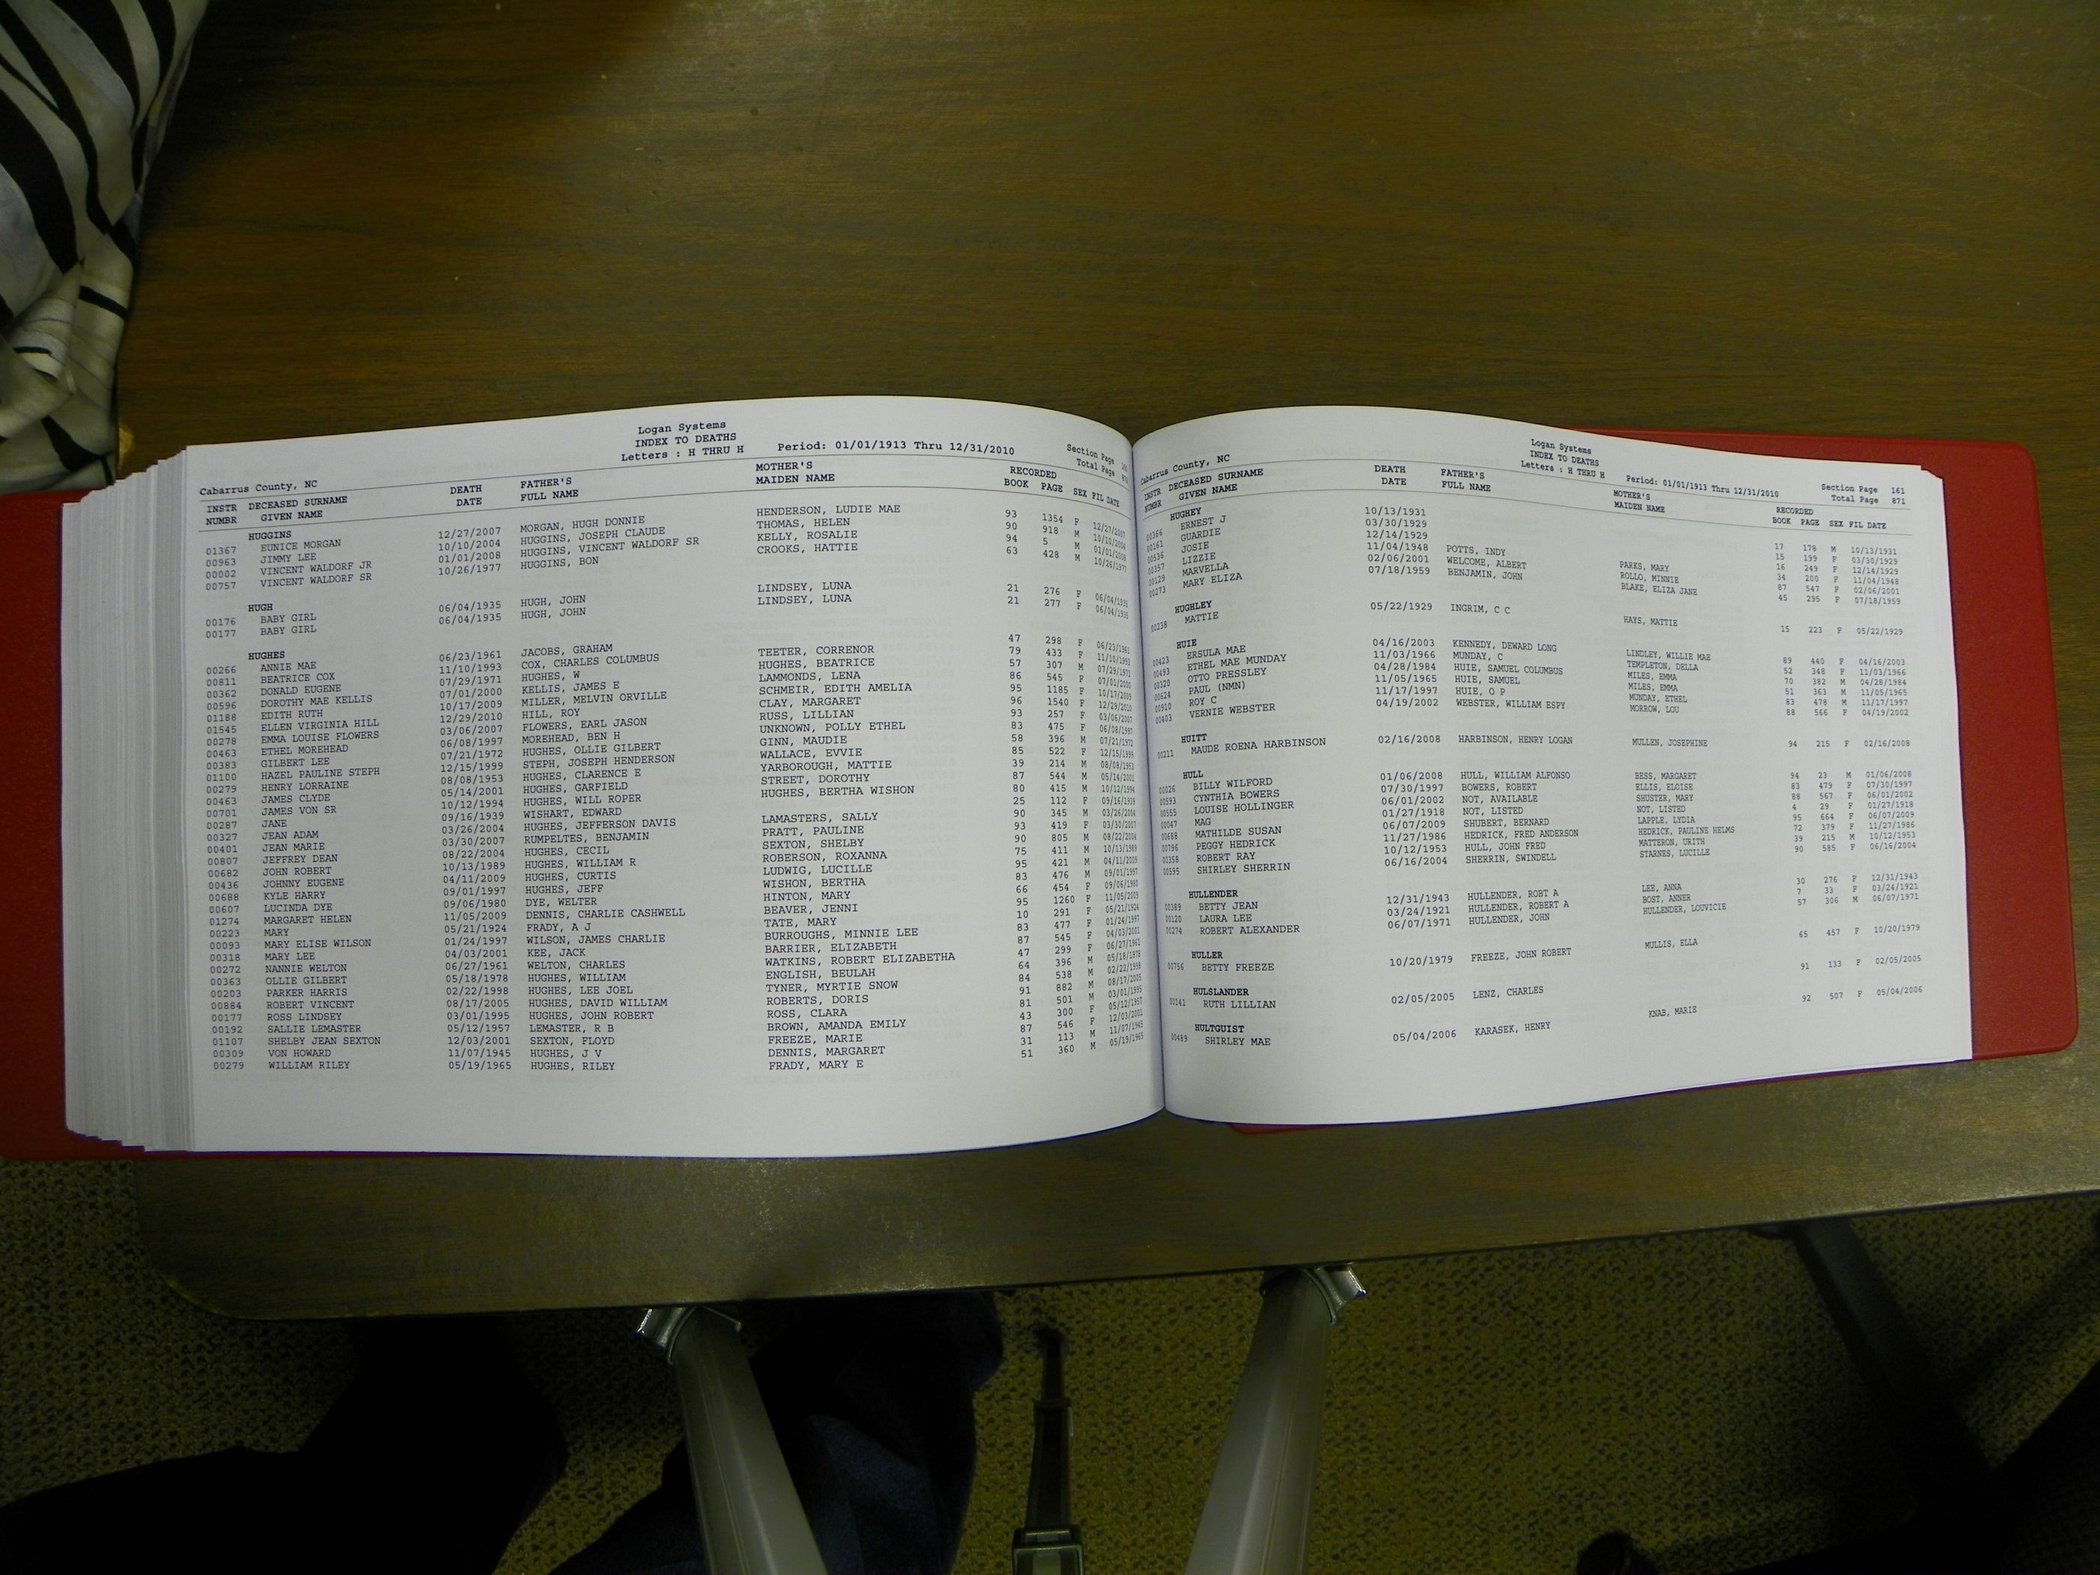 Logan Systems
INDEX TO DEATHS
Letters : H THRU H Period: 01/01/1913 Thru 12/31/2010
Section Page
Total Page 871
Cabarrus County, NC
INSTR DECEASED SURNAME DEATH FATHER'S MOTHER'S RECORDED
NUMBR GIVEN NAME DATE FULL NAME MAIDEN NAME BOOK PAGE SEX FIL DATE
HUGGINS
01367 EUNICE MORGAN 12/27/2007 MORGAN, HUGH DONNIE HENDERSON, LUDIE MAE 93 1354 F 12/27/2007
00963 JIMMY LEE 10/10/2004 HUGGINS, JOSEPH CLAUDE THOMAS, HELEN 90 918 M 10/10/2004
00002 VINCENT WALDORF JR 01/01/2008 HUGGINS, VINCENT WALDORF SR KELLY, ROSALIE 94 5 M 01/01/2008
00757 VINCENT WALDORF SR 10/26/1977 HUGGINS, BON CROOKS, HATTIE 63 428 M 10/26/1977
HUGH
00176 BABY GIRL 06/04/1935 HUGH, JOHN LINDSEY, LUNA 21 276 F 06/04/1935
00177 BABY GIRL 06/04/1935 HUGH, JOHN LINDSEY, LUNA 21 277 F 06/04/1935
HUGHES
00266 ANNIE MAE 06/23/1961 JACOBS, GRAHAM 47 298 F 06/23/1961
00811 BEATRICE COX 11/10/1993 COX, CHARLES COLUMBUS TEETER, CORRENOR 79 433 F 11/10/1993
00362 DONALD EUGENE 07/29/1971 HUGHES, W HUGHES, BEATRICE 57 307 M 07/29/1971
00596 DOROTHY MAE KELLIS 07/01/2000 KELLIS, JAMES E LAMMONDS, LENA 86 545 F 07/01/2000
01188 EDITH RUTH 10/17/2009 MILLER, MELVIN ORVILLE SCHMEIR, EDITH AMELIA 95 1185 F 10/17/2009
01545 ELLEN VIRGINIA HILL 12/29/2010 HILL, ROY CLAY, MARGARET 96 1540 F 12/29/2010
00278 EMMA LOUISE FLOWERS 03/06/2007 FLOWERS, EARL JASON RUSS, LILLIAN 93 257 F 03/06/2007
00463 ETHEL MOREHEAD 06/08/1997 MOREHEAD, BEN H UNKNOWN, POLLY ETHEL 83 475 F 06/08/1997
00383 GILBERT LEE 07/21/1972 HUGHES, OLLIE GILBERT GINN, MAUDIE 58 396 M 07/21/1972
01100 HAZEL PAULINE STEPH 12/15/1999 STEPH, JOSEPH HENDERSON WALLACE, EVVIE 85 522 F 12/15/1999
00279 HENRY LORRAINE 08/08/1953 HUGHES, CLARENCE E YARBOROUGH, MATTIE 39 214 M 08/08/1953
00463 JAMES CLYDE 05/14/2001 HUGHES, GARFIELD STREET, DOROTHY 87 544 M 05/14/2001
00701 JAMES VON SR 10/12/1994 HUGHES, WILL ROPER HUGHES, BERTHA WISHON 80 415 M 10/12/1994
00287 JANE 09/16/1939 WISHART, EDWARD 25 112 F 09/16/1939
00327 JEAN ADAM 03/26/2004 HUGHES, JEFFERSON DAVIS LAMASTERS, SALLY 90 345 M 03/26/2004
00401 JEAN MARIE 03/30/2007 RUMPELTES, BENJAMIN PRATT, PAULINE 93 419 F 03/30/2007
00807 JEFFREY DEAN 08/22/2004 HUGHES, CECIL SEXTON, SHELBY 90 805 M 08/22/2004
00682 JOHN ROBERT 10/13/1989 HUGHES, WILLIAM R ROBERSON, ROXANNA 75 411 M 10/13/1989
00436 JOHNNY EUGENE 04/11/2009 HUGHES, CURTIS LUDWIG, LUCILLE 95 421 M 04/11/2009
00688 KYLE HARRY 09/01/1997 HUGHES, JEFF WISHON, BERTHA 83 476 M 09/01/1997
00607 LUCINDA DYE 09/06/1980 DYE, WELTER HINTON, MARY 66 454 F 09/06/1980
01274 MARGARET HELEN 11/05/2009 DENNIS, CHARLIE CASHWELL BEAVER, JENNI 95 1260 F 11/05/2009
00223 MARY 05/21/1924 FRADY, A J TATE, MARY 10 291 F 05/21/1924
00093 MARY ELISE WILSON 01/24/1997 WILSON, JAMES CHARLIE BURROUGHS, MINNIE LEE 83 477 F 01/24/1997
00318 MARY LEE 04/03/2001 KEE, JACK BARRIER, ELIZABETH 87 545 F 04/03/2001
00272 NANNIE WELTON 06/27/1961 WELTON, CHARLES WATKINS, ROBERT ELIZABETHA 47 299 F 06/27/1961
00363 OLLIE GILBERT 05/18/1978 HUGHES, WILLIAM ENGLISH, BEULAH 64 396 M 05/18/1978
00203 PARKER HARRIS 02/22/1998 HUGHES, LEE JOEL TYNER, MYRTIE SNOW 84 538 M 02/22/1998
00884 ROBERT VINCENT 08/17/2005 HUGHES, DAVID WILLIAM ROBERTS, DORIS 91 882 M 08/17/2005
00177 ROSS LINDSEY 03/01/1995 HUGHES, JOHN ROBERT ROSS, CLARA 81 501 M 03/01/1995
00192 SALLIE LEMASTER 05/12/1957 LEMASTER, R B BROWN, AMANDA EMILY 43 300 F 05/12/1957
01107 SHELBY JEAN SEXTON 12/03/2001 SEXTON, FLOYD FREEZE, MARIE 87 546 F 12/03/2001
00309 VON HOWARD 11/07/1945 HUGHES, J V DENNIS, MARGARET 31 113 M 11/07/1945
00279 WILLIAM RILEY 05/19/1965 HUGHES, RILEY FRADY, MARY E 51 360 M 05/19/1965
Logan Systems
INDEX TO DEATHS
Letters : H THRU H Period: 01/01/1913 Thru 12/31/2010
Section Page 161
Total Page 871
Cabarrus County, NC
INSTR DECEASED SURNAME DEATH FATHER'S MOTHER'S RECORDED
NUMBR GIVEN NAME DATE FULL NAME MAIDEN NAME BOOK PAGE SEX FIL DATE
HUGHEY
00366 ERNEST J 10/13/1931 17 178 M 10/13/1931
00161 GUARDIE 03/30/1929 15 199 F 03/30/1929
00536 JOSIE 12/14/1929 16 249 F 12/14/1929
00357 LIZZIE 11/04/1948 POTTS, INDY PARKS, MARY 34 200 F 11/04/1948
00129 MARVELLA 02/06/2001 WELCOME, ALBERT ROLLO, MINNIE 87 547 F 02/06/2001
00273 MARY ELIZA 07/18/1959 BENJAMIN, JOHN BLAKE, ELIZA JANE 45 295 F 07/18/1959
HUGHLEY
00238 MATTIE 05/22/1929 INGRIM, C C HAYS, MATTIE 15 223 F 05/22/1929
HUIE
00423 ERSULA MAE 04/16/2003 KENNEDY, DEWARD LONG LINDLEY, WILLIE MAE 89 440 F 04/16/2003
00493 ETHEL MAE MUNDAY 11/03/1966 MUNDAY, C TEMPLETON, DELLA 52 348 F 11/03/1966
00320 OTTO PRESSLEY 04/28/1984 HUIE, SAMUEL COLUMBUS MILES, EMMA 70 382 M 04/28/1984
00624 PAUL (NMN) 11/05/1965 HUIE, SAMUEL MILES, EMMA 51 363 M 11/05/1965
00910 ROY C 11/17/1997 HUIE, O P MUNDAY, ETHEL 83 478 M 11/17/1997
00403 VERNIE WEBSTER 04/19/2002 WEBSTER, WILLIAM ESPY MORROW, LOU 88 566 F 04/19/2002
HUITT
00211 MAUDE ROENA HARBINSON 02/16/2008 HARBINSON, HENRY LOGAN MULLEN, JOSEPHINE 94 215 F 02/16/2008
HULL
00026 BILLY WILFORD 01/06/2008 HULL, WILLIAM ALFONSO BESS, MARGARET 94 23 M 01/06/2008
00593 CYNTHIA BOWERS 07/30/1997 BOWERS, ROBERT ELLIS, ELOISE 83 479 F 07/30/1997
00555 LOUISE HOLLINGER 06/01/2002 NOT, AVAILABLE SHUSTER, MARY 88 567 F 06/01/2002
00047 MAG 01/27/1918 NOT, LISTED NOT, LISTED 4 29 F 01/27/1918
00688 MATHILDE SUSAN 06/07/2009 SHUBERT, BERNARD LAPPLE, LYDIA 95 664 F 06/07/2009
00796 PEGGY HEDRICK 11/27/1986 HEDRICK, FRED ANDERSON HEDRICK, PAULINE HELMS 72 379 F 11/27/1986
00358 ROBERT RAY 10/12/1953 HULL, JOHN FRED MATTERON, URITH 39 215 M 10/12/1953
00595 SHIRLEY SHERRIN 06/16/2004 SHERRIN, SWINDELL STARNES, LUCILLE 90 585 F 06/16/2004
HULLENDER
00389 BETTY JEAN 12/31/1943 HULLENDER, ROBT A LEE, ANNA 30 276 F 12/31/1943
00120 LAURA LEE 03/24/1921 HULLENDER, ROBERT A BOST, ANNER 7 33 F 03/24/1921
00274 ROBERT ALEXANDER 06/07/1971 HULLENDER, JOHN HULLENDER, LOUVICIE 57 306 M 06/07/1971
HULLER
00756 BETTY FREEZE 10/20/1979 FREEZE, JOHN ROBERT MULLIS, ELLA 65 457 F 10/20/1979
HULSLANDER
00141 RUTH LILLIAN 02/05/2005 LENZ, CHARLES 91 133 F 02/05/2005
HULTGUIST
00489 SHIRLEY MAE 05/04/2006 KARASEK, HENRY KNAB, MARIE 92 507 F 05/04/2006